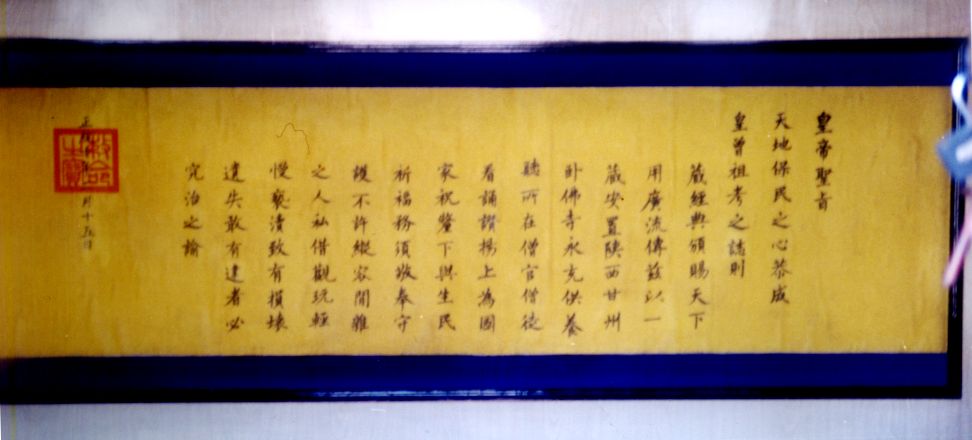 皇帝聖旨
天地保民之心恭成
皇曾祖考之誌則
藏經典頒賜天下
用廣流傳茲以一
藏安置陝西甘州
卧佛寺永充供養
聽所在僧官僧徒
看誦讚揚上為國
家祝釐下與生民
祈福務須敬奉守
護不許縱容閒雜
之人私借觀玩輕
慢褻瀆致有損壞
遺失敢有違者必
究治之諭
正月十五日
敕命之寶